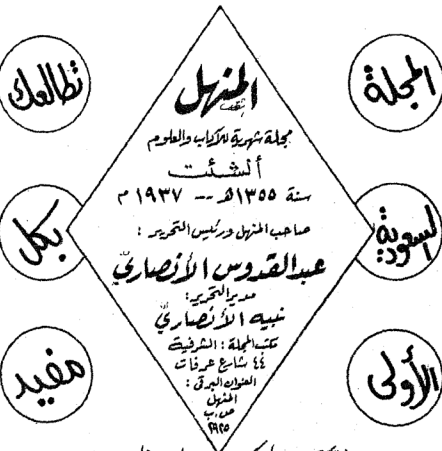 المجلة
السعودية
الأولى
تطالعك
بكل
مفيد
المنهل
مجلة شهرية للآداب والعلوم
أنشئت
سنة ١٣٥٥هـ -- ١٩٣٧ م
صاحب المنهل ورئيس التحرير :
عبدالقدوس الأنصاري
مدير التحرير:
نبيه الأنصاري
مكتب المجلة : الشرفية
٤٤ شارع عرفات
العنوان البرقي :
المنهل
ص.ب
٢٩٢٥